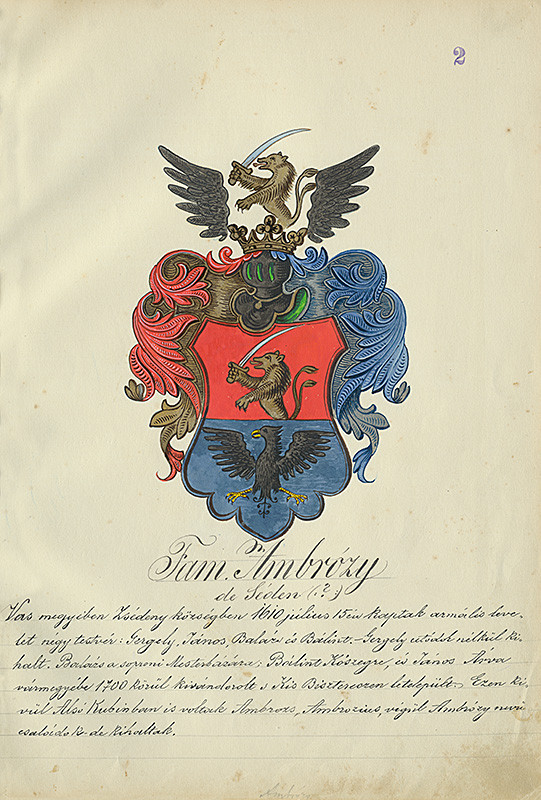 2
Fam. Ambrózy
de Séden (?)
Vas megyében Zsédeny községben 1610 július 15 én kaptak armális leve-
let négy testvér: Gergely, János, Balázs és Bálint. – Gergely utódok nélkül ki-
halt. Balázs a soproni Mesterházára; Bálint Kőszegre, és János Árva
vármegyébe 1700 körül kivándorolt s Kis Biszterecen letelepült. Ezen ki-
vül Alsó Kubinban is voltak Ambrozs, Ambrozius, végül Ambrózy nevü
családok – de kihaltak.
Ambrózy